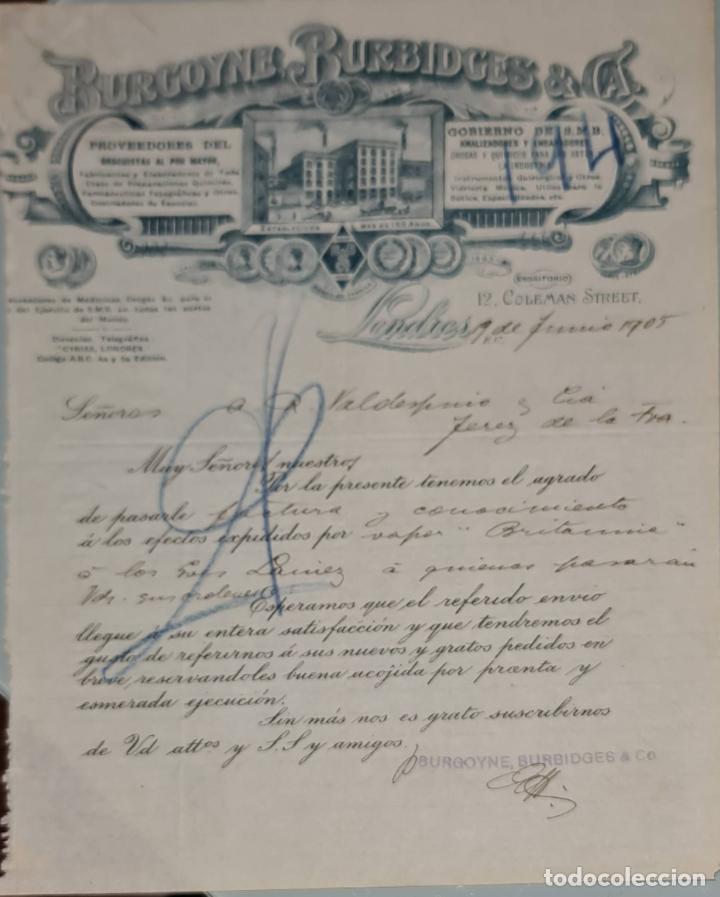 BURGOYNE, BURBIDGES & CA.
PROVEEDORES DEL
DROGUISTAS AL POR MAYOR,
Fabricantes y Elaboradores de Toda
Clase de Preparaciones Químicas,
Farmacéuticas Fotográficas y Otras,
Destiladores de Esencias.
GOBIERNO DE S.M.B.
ANALIZADORES Y
DROGAS Y QUIMICOS PARA LAS ARTES
Instrumentos Quirurgicos y Otros,
Vidriería Médica, Utiles para la
Botica, Especialidades, etc.
ESTABLECIDOS MAS DE 150 AÑOS.
(ESCRITORIO)
12, COLEMAN STREET,
Londres, 19 de Junio 1905
E.C.
114
de Medicinas Drogas &c. para el
del Ejército de S.M.B. en todas las partes
del Mundo.
Dirección Telegráfica:
"CYRIAX, LONDRES."
Código A.B.C. 4a y 5a Edición.
Señores A. R. Valdespino y Cia
Jerez de la Fra.
Muy Señores nuestros
Por la presente tenemos el agrado
de pasarle factura y conocimiento
á los efectos expedidos por vapor "Britannia"
á los Sres á quienes pasarán
Vds. sus ordenes.
Esperamos que el referido envio
llegue á su entera satisfacción y que tendremos el
gusto de referirnos á sus nuevos y gratos pedidos en
breve, reservandoles buena acojida por pronta y
esmerada ejecución.
Sin más nos es grato suscribirnos
de Vd attos y S.S y amigos.
BURGOYNE, BURBIDGES & Co
todocoleccion.net